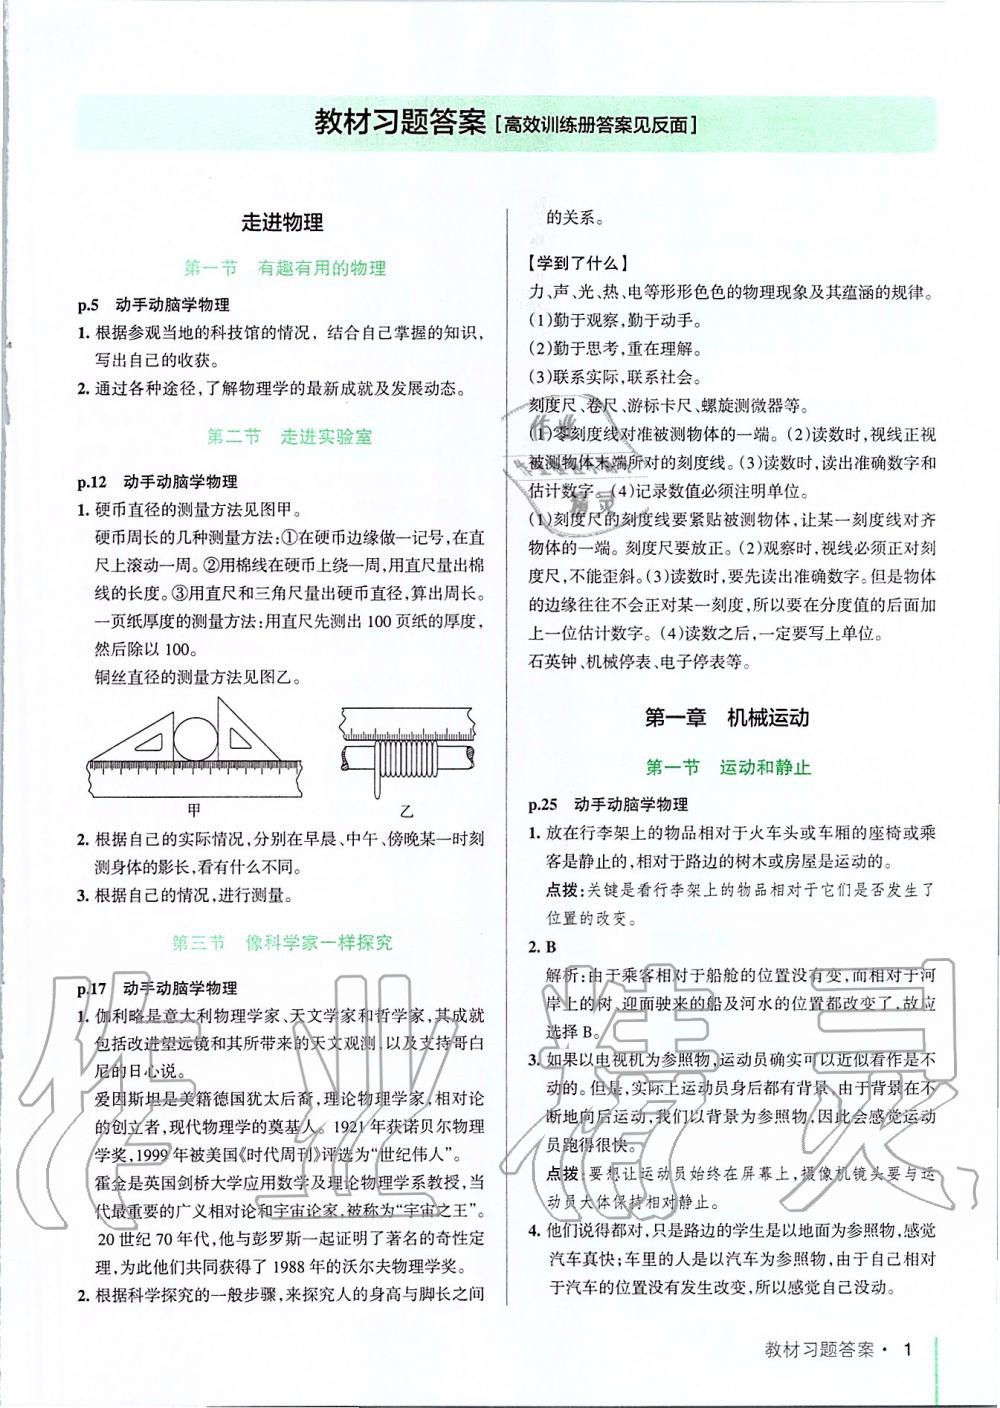 教材习题答案[高效训练册答案见反面]
走进物理
第一节 有趣有用的物理
p.5 动手动脑学物理
1. 根据参观当地的科技馆的情况，结合自己掌握的知识，
写出自己的收获。
2. 通过各种途径,了解物理学的最新成就及发展动态。
第二节 走进实验室
p.12 动手动脑学物理
1. 硬币直径的测量方法见图甲。
硬币周长的几种测量方法:①在硬币边缘做一记号,在直
尺上滚动一周。②用棉线在硬币上绕一周,用直尺量出棉
线的长度。③用直尺和三角尺量出硬币直径,算出周长。
一页纸厚度的测量方法:用直尺先测出 100 页纸的厚度,
然后除以 100。
铜丝直径的测量方法见图乙。
甲 乙
2. 根据自己的实际情况,分别在早晨、中午、傍晚某一时刻
测身体的影长,看有什么不同。
3. 根据自己的情况,进行测量。
第三节 像科学家一样探究
p.17 动手动脑学物理
1. 伽利略是意大利物理学家、天文学家和哲学家,其成就
包括改进望远镜和其所带来的天文观测,以及支持哥白
尼的日心说。
爱因斯坦是美籍德国犹太后裔,理论物理学家,相对论
的创立者,现代物理学的奠基人。1921 年获诺贝尔物理
学奖,1999 年被美国《时代周刊》评选为“世纪伟人”。
霍金是英国剑桥大学应用数学及理论物理学系教授,当
代最重要的广义相对论和宇宙论家,被称为“宇宙之王”。
20 世纪 70 年代,他与彭罗斯一起证明了著名的奇性定
理,为此他们共同获得了 1988 年的沃尔夫物理学奖。
2. 根据科学探究的一般步骤,来探究人的身高与脚长之间
的关系。
【学到了什么】
力、声、光、热、电等形形色色的物理现象及其蕴涵的规律。
(1)勤于观察,勤于动手。
(2)勤于思考,重在理解。
(3)联系实际,联系社会。
刻度尺、卷尺、游标卡尺、螺旋测微器等。
(1)零刻度线对准被测物体的一端。(2)读数时,视线正视
被测物体末端所对的刻度线。(3)读数时,读出准确数字和
估计数字。(4)记录数值必须注明单位。
(1)刻度尺的刻度线要紧贴被测物体,让某一刻度线对齐
物体的一端。刻度尺要放正。(2)观察时,视线必须正对刻
度尺,不能歪斜。(3)读数时,要先读出准确数字。但是物体
的边缘往往不会正对某一刻度,所以要在分度值的后面加
上一位估计数字。(4)读数之后,一定要写上单位。
石英钟、机械停表、电子停表等。
第一章 机械运动
第一节 运动和静止
p.25 动手动脑学物理
1. 放在行李架上的物品相对于火车头或车厢的座椅或乘
客是静止的,相对于路边的树木或房屋是运动的。
点拨:关键是看行李架上的物品相对于它们是否发生了
位置的改变。
2. B
解析:由于乘客相对于船舱的位置没有变,而相对于河
岸上的树、迎面驶来的船及河水的位置都改变了,故应
选择 B。
3. 如果以电视机为参照物,运动员确实可以近似看作是不
动的。但是,实际上运动员身后都有背景,由于背景在不
断地向后运动,我们以背景为参照物,因此会感觉运动
员跑得很快。
点拨:要想让运动员始终在屏幕上,摄像机镜头要与运
动员大体保持相对静止。
4. 他们说得都对,只是路边的学生是以地面为参照物,感觉
汽车真快;车里的人是以汽车为参照物,由于自己相对
于汽车的位置没有发生改变,所以感觉自己没动。
教材习题答案 · 1
作业精灵
作业
精灵